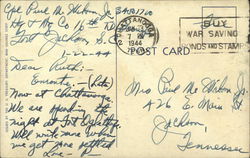 Cpl Paul M. Wilson Jr. 34
Hq & Hq Co. 16th
Fort Jackson, S.C.
1-22-44
Dear Ruth:-
Enroute - (Late)
Now at Chattanooga
We are spending the
night at Fort Oglethorpe
Will write some when
we get more settled
Love -
CHATTANOOGA
7 PM
1944
BUY
WAR SAVINGS
BONDS AND STAMPS
POST CARD
Mrs Paul M. Wilson Jr.
426 E. Main St
Jackson,
Tennessee